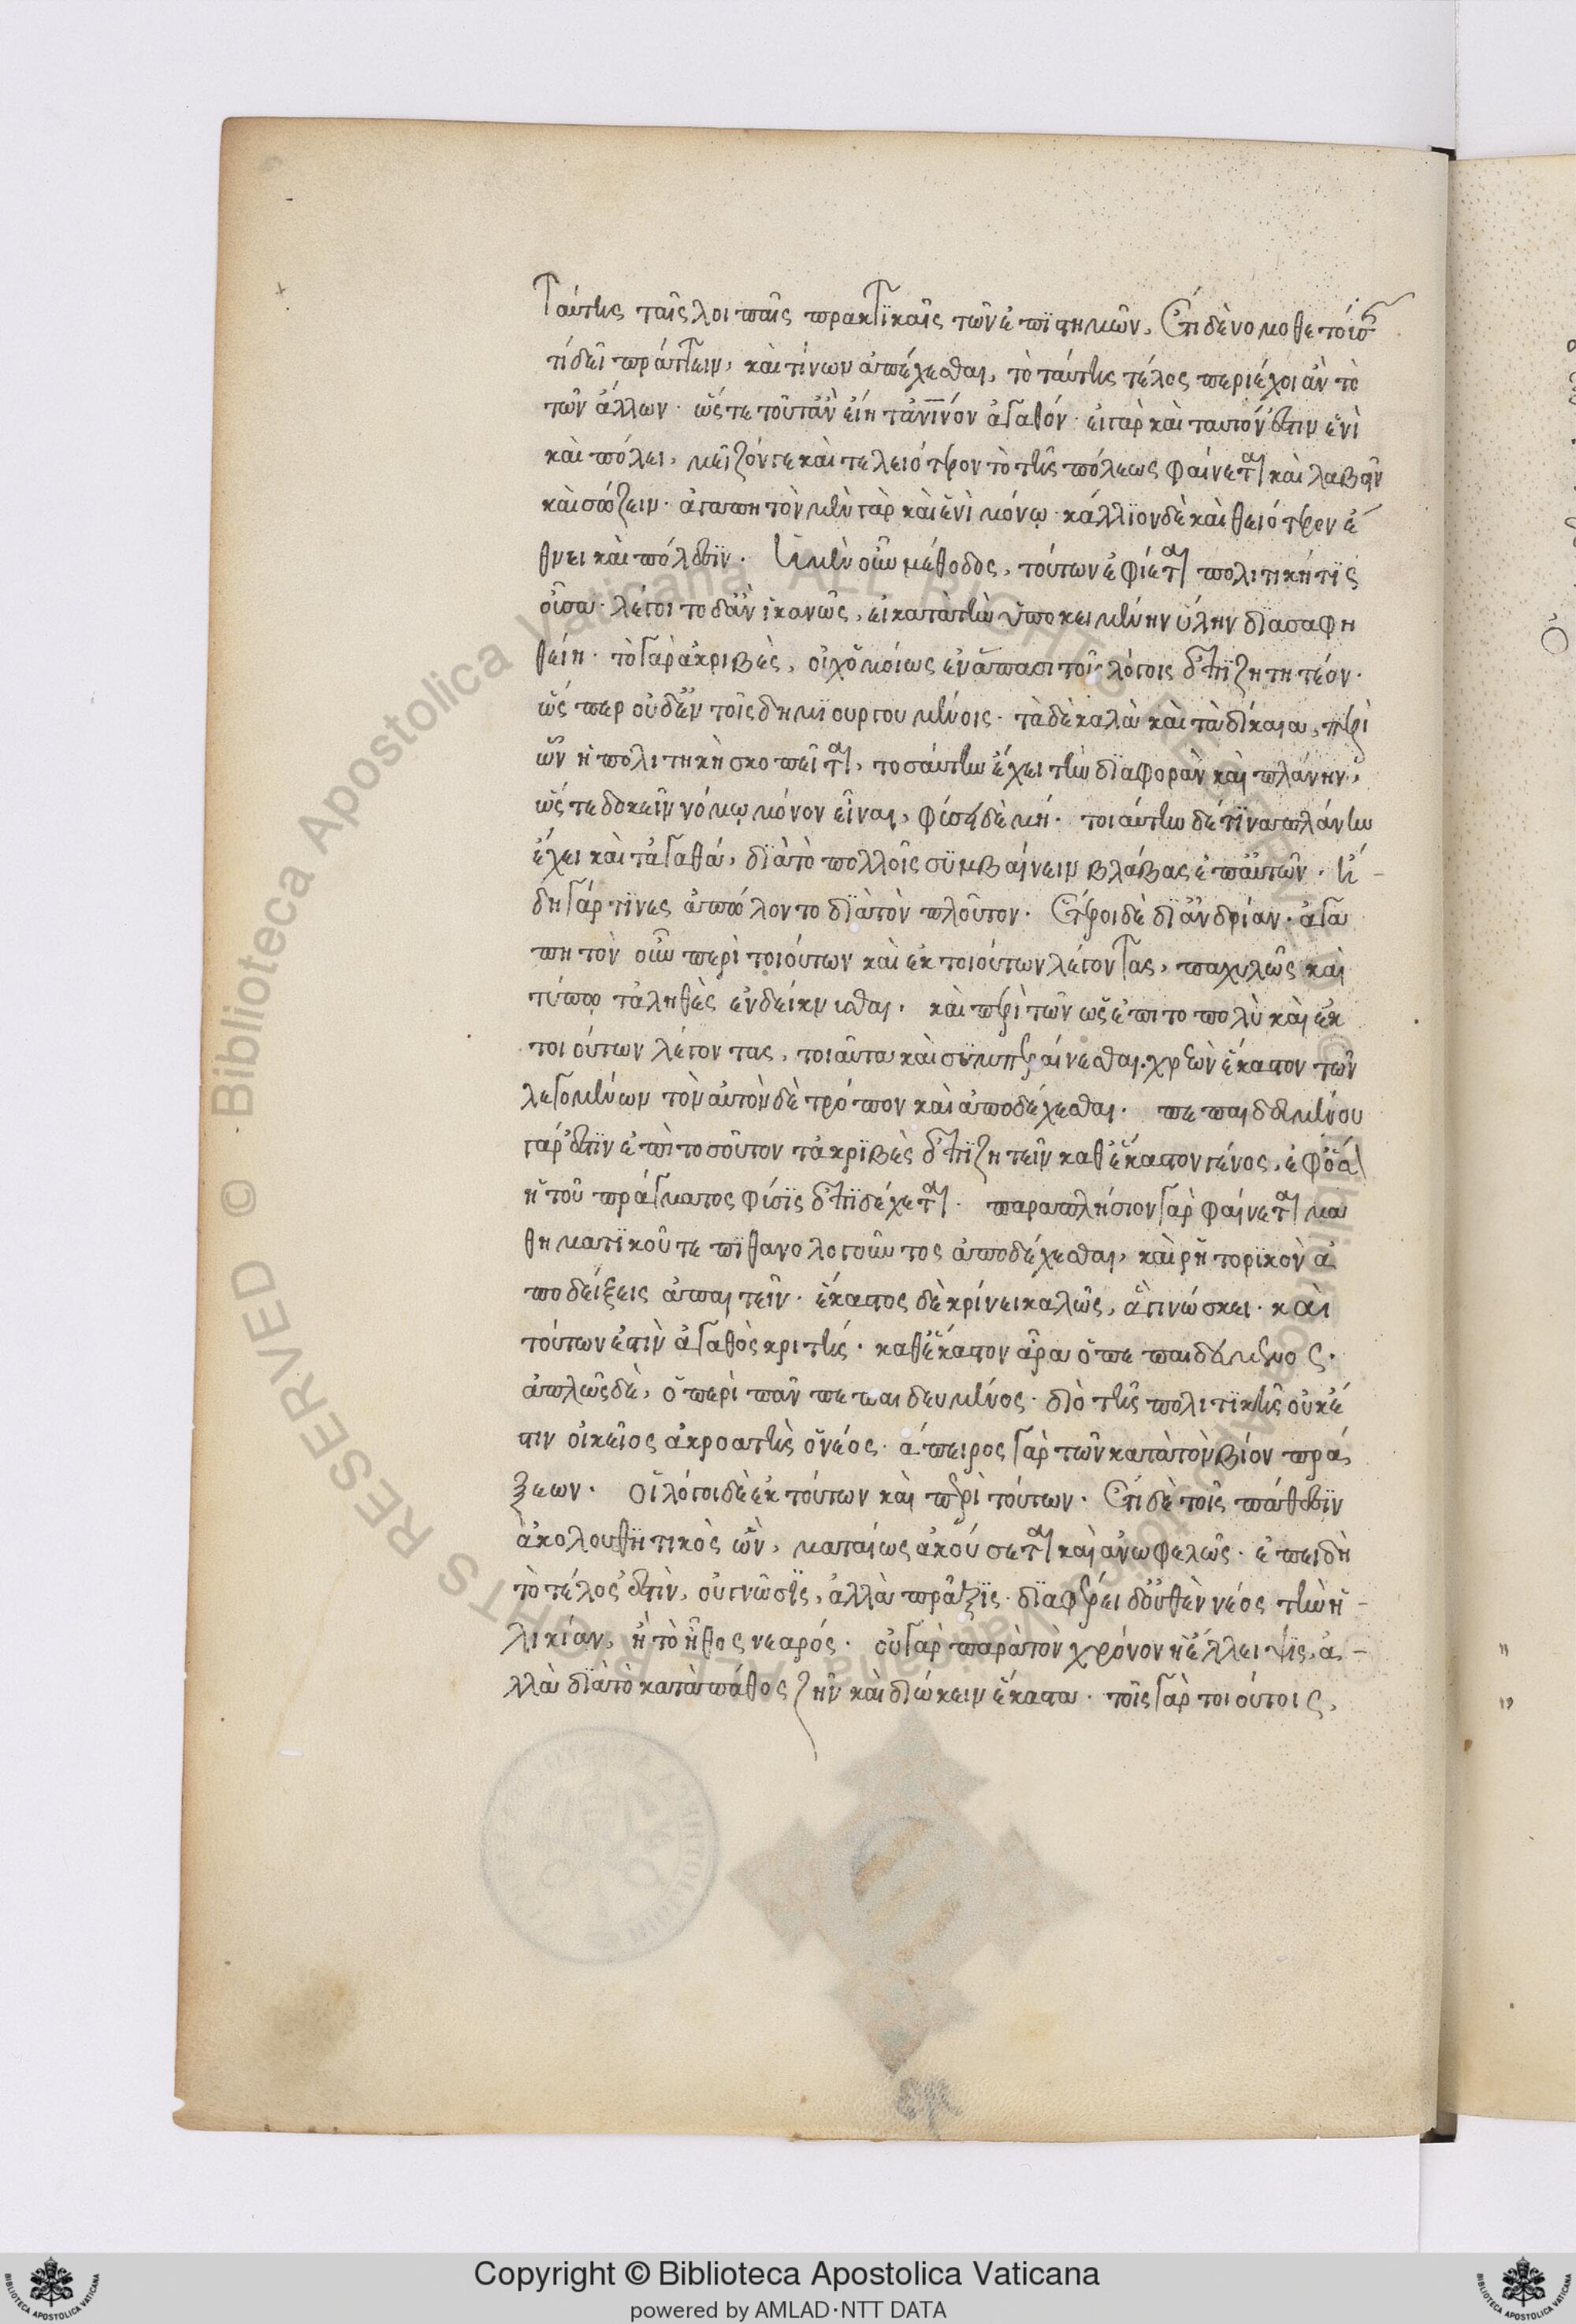 ταύτης ταῖς λοιπαῖς πρακτϊκαῖς τῶν ἐπϊστημῶν, ἔτι δὲ νομοθετούσ
τί δεῖ πράττειν, καὶ τίνων ἀπέχεσθαι, τὸ ταύτης τέλος περιέχοι ἂν τὸ
τῶν ἄλλων· ὥστε τοῦτ ἂν εἴη τἀνῑνόν ἀγαθόν· εἰ γὰρ καὶ ταυτόν ἐστιν ἑνὶ
καὶ πόλει, μεῖζόν γε καὶ τελειότερον τὸ τῆς πόλεως φαίνεται καὶ λαβεῖν
καὶ σώζειν· ἀγαπητὸν μὲν γὰρ καὶ ἑνὶ μόνῳ· κάλλϊον δὲ καὶ θειότερον ἔ
θνει καὶ πόλεσϊν· ἡ μὲν οὖν μέθοδος, τούτων ἐφίεται πολιτικήτϊς
οὖσα· λέγοιτο δ ἂν ἱκανῶς, εἰ κατὰ τὴν ὑποκειμένην ὕλην δϊασαφη
θείη· τὸ γὰρ ἀκριβὲς, οὐχ ὁμοίως ἐν ἅπασι τοῖς λόγοις ἐπϊζητητέον·
ὥσπερ οὐδ ἐν τοῖς δημϊουργουμένοις· τὰ δὲ καλὰ καὶ τὰ δίκαια, περὶ
ὧν ἡ πολιτηκὴ σκοπεῖται, τοσαύτην ἔχει τὴν δϊαφορὰν καὶ πλάνην,
ὥστε δοκεῖν νόμῳ μόνον εἶναι, φύσει δὲ μή· τοιαύτην δέ τϊνα πλάνην
ἔχει καὶ τἀγαθά, δϊὰ τὸ πολλοῖς συμβαίνειν βλάβας ἐπ αὐτῶν· ἤ-
δη γάρ τϊνες ἀπώλοντο δϊὰ τὸν πλοῦτον· ἕτεροι δὲ δϊ ἀνδρίαν· ἀγα
πητὸν οὖν περὶ τοιούτων καὶ ἐκ τοιούτων λέγοντας, παχυλῶς καὶ
τύπῳ τἀληθὲς ἐνδείκνυσθαι· καὶ περὶ τῶν ὡς ἐπι το πολὺ καὶ ἐκ
τοιούτων λέγοντας, τοιαῦτα καὶ συμπεραίνεσθαι· χρεὼν ἕκαστον τῶν
λεγομένων τὸν αὐτὸν δὲ τρόπον καὶ ἀποδέχεσθαι· πεπαιδευμένου
γάρ ἐστϊν ἐπὶ τοσοῦτον τἀκρϊβὲς ἐπϊζητεῖν καθ ἕκαστον γένος, ἐφ ὅσ
ἡ τοῦ πράγματος φύσϊς ἐπϊδέχεται· παραπλήσιον γὰρ φαίνεται μα
θηματϊκοῦ τε πϊθανολογοῦντος ἀποδέχεσθαι, καὶ ῥητορϊκὸν ἀ
ποδείξεις ἀπαιτεῖν· ἕκαστος δὲ κρίνει καλῶς, ἃ γινώσκει· καὶ
τούτων ἐστὶν ἀγαθὸς κριτής· καθ ἕκαστον ἄρα ὁ πεπαιδευμένος·
ἁπλῶς δὲ, ὁ περὶ πᾶν πεπαιδευμένος· διὸ τῆς πολιτϊκῆς οὐκ ἔ
στιν οἰκεῖος ἀκροατὴς ὁ νέος· ἄπειρος γὰρ τῶν κατὰ τὸν βίον πρά
ξεων· οἱ λόγοι δὲ ἐκ τούτων καὶ περὶ τούτων· ἔτι δὲ τοῖς πάθεσϊν
ἀκολουθητικὸς ὢν, ματαίως ἀκούσεται καὶ ἀνωφελῶς· ἐπειδὴ
τὸ τέλος ἐστὶν, οὐ γνῶσϊς, ἀλλὰ πρᾶξϊς· δϊαφέρει δ οὐθὲν νέος τὴν ἡ-
λικίαν, ἢ τὸ ἦθος νεαρός· οὐ γὰρ παρὰ τὸν χρόνον ἡ ἔλλειψϊς, ἀ-
λλὰ δϊὰ τὸ κατὰ πάθος ζῆν καὶ διώκειν ἕκαστα· τοῖς γὰρ τοιούτοις,
Copyright © Biblioteca Apostolica Vaticana
powered by AMLAD·NTT DATA